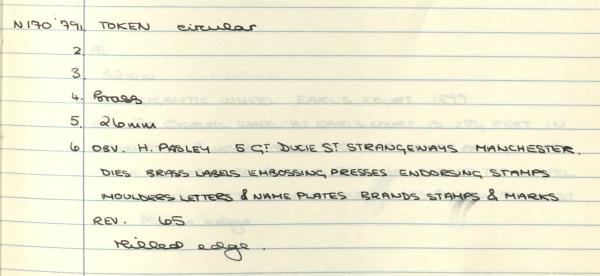 N170 '79 1. TOKEN circular
2
3.
4. Brass
5. 26mm
6 OBV. H. PASLEY 5 GT DUCIE ST STRANGEWAYS MANCHESTER.
DIES BRASS LABELS EMBOSSING PRESSES ENDORSING STAMPS
MOULDERS LETTERS & NAME PLATES BRANDS STAMPS & MARKS
REV. 65
Milled edge.